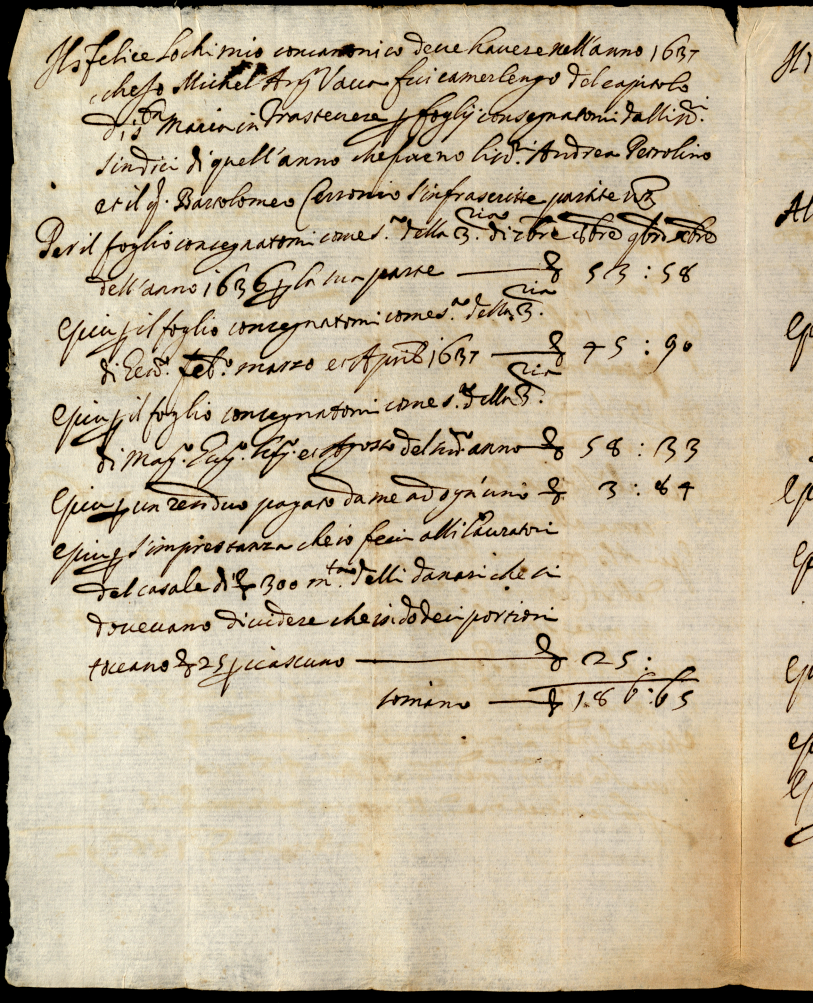 Il S. felice Lochi mio concanonico deve havere nell'anno 1637
che Io Michel Ang.º Vacca fui camerlengo del capitolo
di S.ta Maria in Trastevere p fogli consegnatomi dalli SS.ri
sindici di quell'anno che furno li SS.ri Andrea Petrolino
et il q. Bartolomeo Cerronio l'infrascritte partite
Per il foglio consegnatomi come s.a della 3.ria di 7bre 8bre 9bre xbre
dell'anno 1636 p la sua parte — ∇ 53 : 58
E piu p il foglio consegnatomi come s.a della 3.ria
di Feb.º marzo et Aprile 1637 — ∇ 45 : 90
E piu p il foglio consegnatomi come s.a della 3.ria
di Mag.º Giug.º et Agosto del sud.º anno — ∇ 58 : 33
E piu p un residuo pagato da me ad ogn'uno ∇ 3 : 84
E piu p l'imprestanza che io feci alli lavoratori
del casale di ∇ 300 m.ta delli danari che si
dovevano dividere che in dodeci portioni
toccano ∇ 25 p ciascuno — ∇ 25 :
somano — ∇ 186 : 65